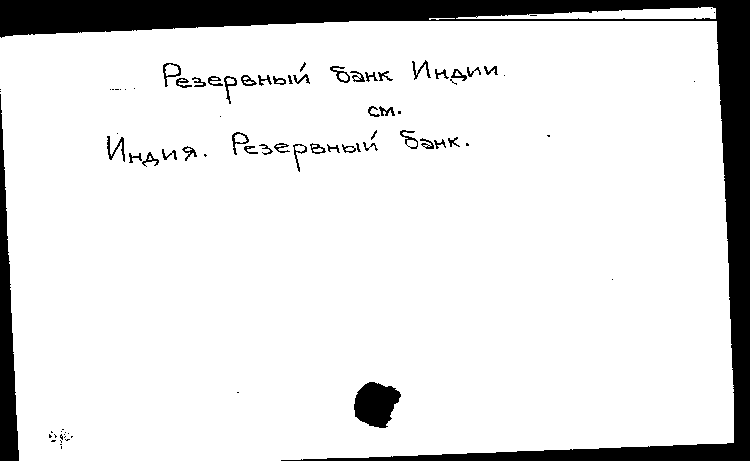 Резервный банк Индии
см.
Индия. Резервный банк.